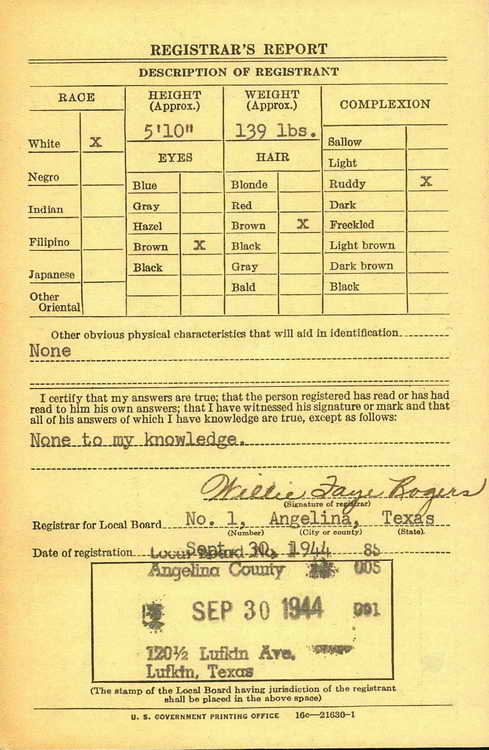 REGISTRAR'S REPORT
DESCRIPTION OF REGISTRANT
RACE
HEIGHT
(Approx.)
WEIGHT
(Approx.)
COMPLEXION
5'10"
139 lbs.
White X
Negro
Indian
Filipino
Japanese
Other
Oriental
EYES
Blue
Gray
Hazel
Brown X
Black
HAIR
Blonde
Red
Brown X
Black
Gray
Bald
Sallow
Light
Ruddy X
Dark
Freckled
Light brown
Dark brown
Black
Other obvious physical characteristics that will aid in identification
None
I certify that my answers are true; that the person registered has read or has had
read to him his own answers; that I have witnessed his signature or mark and that
all of his answers of which I have knowledge are true, except as follows:
None to my knowledge.
Willie Faye Rogers
(Signature of registrar)
Registrar for Local Board No. 1, Angelina, Texas
(Number) (City or county) (State)
Date of registration Sept. 30, 1944
Local Board No. 1 85
Angelina County 005
SEP 30 1944 001
120½ Lufkin Ave.
Lufkin, Texas
(The stamp of the Local Board having jurisdiction of the registrant
shall be placed in the above space)
U. S. GOVERNMENT PRINTING OFFICE 16c—21630-1